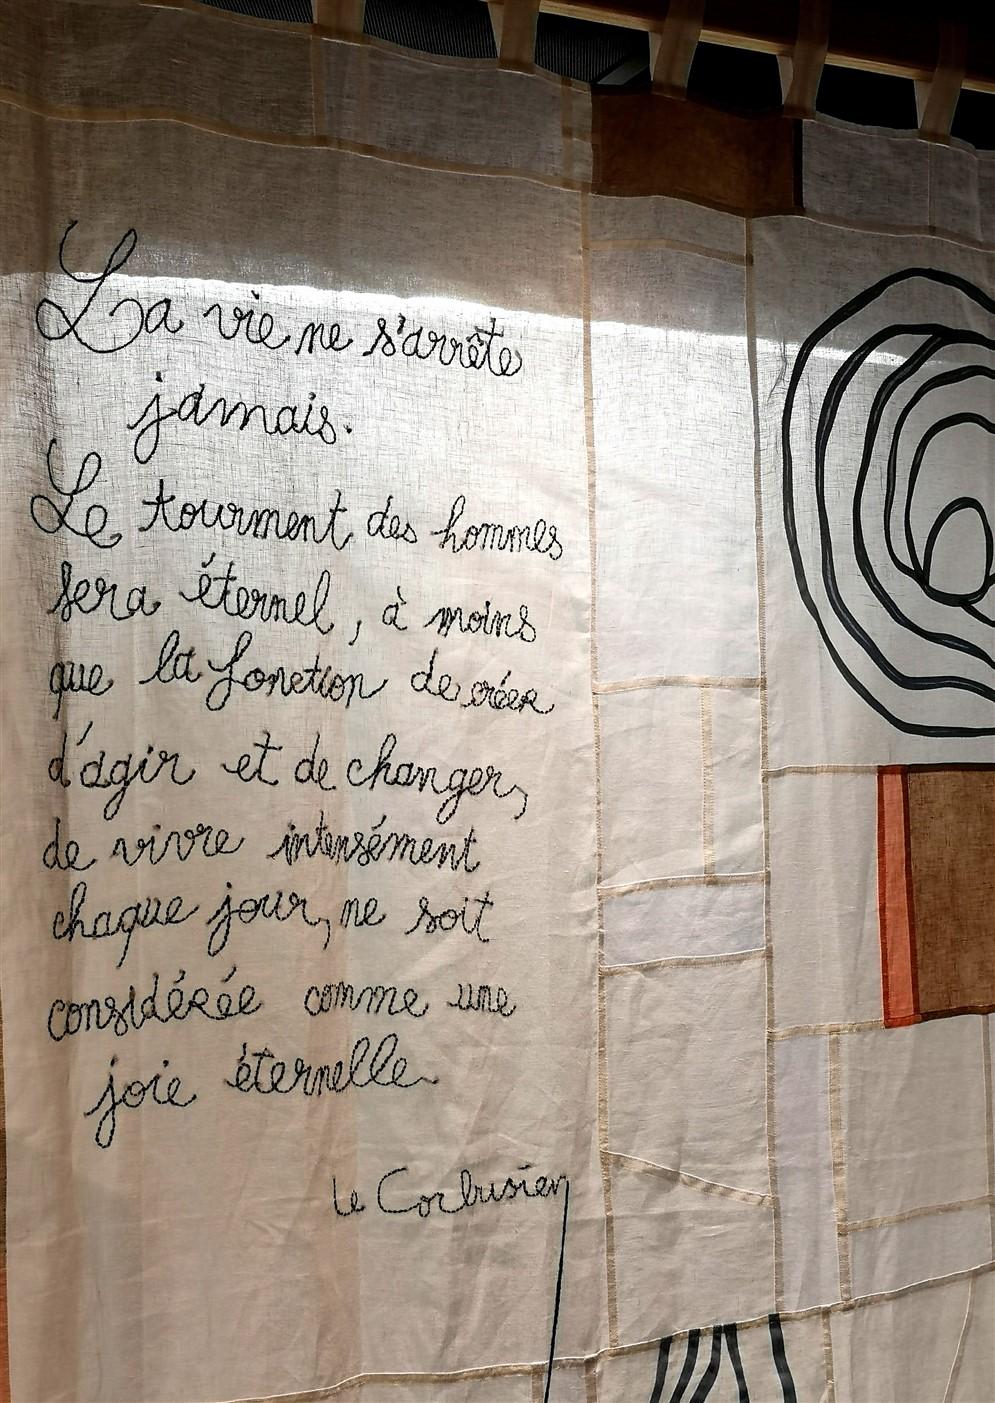 La vie ne s'arrête
jamais.
Le tourment des hommes
sera éternel, à moins
que la fonction de créer
d'agir et de changer,
de vivre intensément
chaque jour, ne soit
considérée comme une
joie éternelle.
Le Corbusier